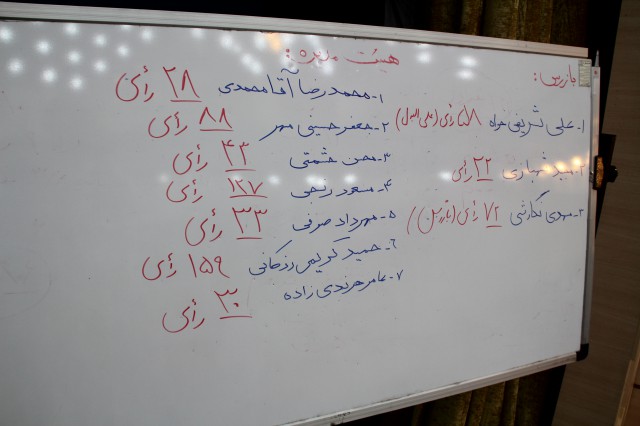 هیئت مدیره:
۱- محمدرضا آقامحمدی ۲۸ رأی
۲- جعفر حسینی مهر ۸۸ رأی
۳- محسن حشمتی ۴۳ رأی
۴- مسعود رنجی ۱۲۷ رأی
۵- مهرداد صرفی ۳۳ رأی
۶- حمید کریمی رزکانی ۱۵۹ رأی
۷- عامر هرندی زاده ۳۰ رأی
بازرس:
۱- علی شریفی خواه ۵۸ رأی (علی البدل)
۲- شهبازی ۲۲ رأی
۳- مهدی نگارشی ۷۲ رأی (بازرس)